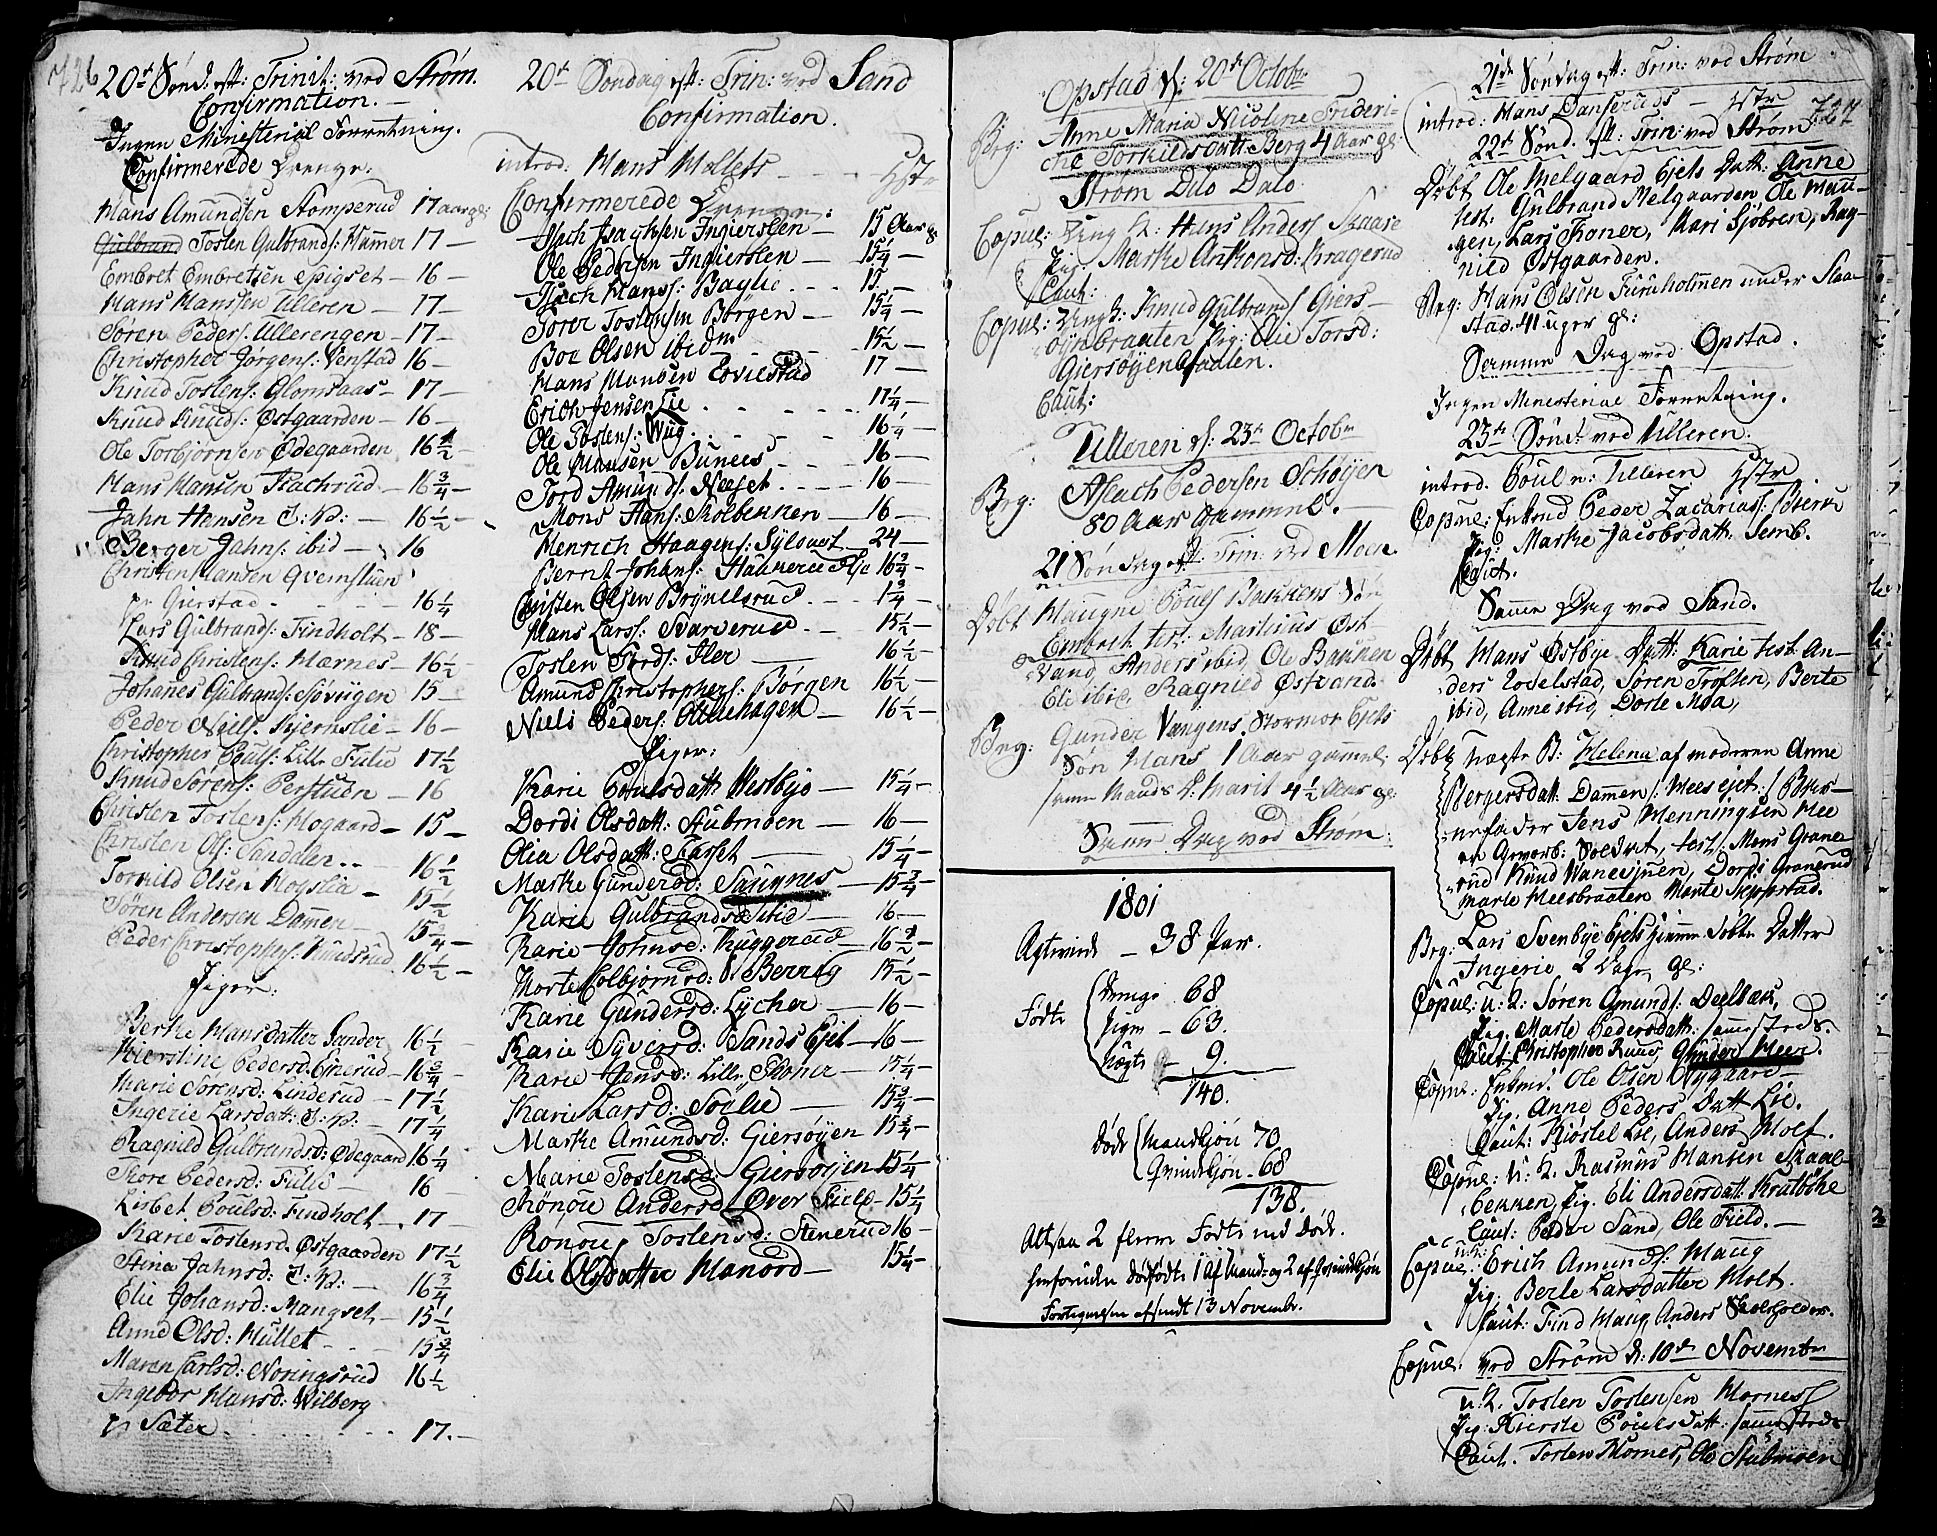 726
20de Sønd: eft: Trinit: ved Strøm.
Confirmation. —
Ingen Ministerial Forretning.
Confirmerede Drenge.
Hans Amundsen Stomperud 17 aar gl:
Tosten Gulbrands: Hammer 17 —
Embret Embretsen — 16 —
Hans Hanssen Ulleren — 17 —
Søren Peders: Ullerengen — 17 —
Christopher Jørgens: Venstad 16 —
Knud Tostens: Glomsaas — 17 —
Knud Knuds: Østgaarden — 16 —
Ole Torbjørnsen Ødegaarden 16 1/2 —
Hans Hansen Rachrud — 16 3/4 —
Jahn Hansen S: V: — 16 1/2 —
Berger Jahns: ibid — 16
Christen Hansen Qvernstuen
Gierstad — 16 1/4
Lars Gulbrands: Findholt — 18 —
Knud Christens: Mærnes — 16 1/2 —
Johanes Gulbrands: Søviigen 15 —
Peder Niels: Kjernslie — 16 —
Christopher Pouls: Lille Fulu 17 1/2
Knud Sørens: Perstuen — 16
Christen Tostens: Mogaard — 15 —
Christen Ols: Sandalen — 16 1/2
Torkild Olsen Mogslia — 15 1/2
Søren Andersen Damen — 15 3/4 —
Peder Christophers: Knudsrud 16 1/2 —
Piger:
Berthe Hansdatter Sander 16 1/2 —
Kierstine Pedersd: Enerud — 16 3/4 —
Marie Sørensd: Linderud — 17 1/2
Ingerie Larsdatt: S: V: — 17 1/4
Ragnild Gulbrandsd: Ødegaard 16 1/4
Thore Pedersd: Fulu — 16 —
Lisbet Poulsd: Findholt — 17 —
Karie Tostensd. Østgaarden 17 1/2
Stina Jahnsd: S: V: — 16 3/4
Elie Johansd: Mangset — 15 1/2
Anne Olsd: Mullet — 15 3/4
Maren Carlsd: Noringsrud 16 1/2
Ingebor Hansd: Wilberg
Sæter — 17. —
20de Søndag eft: Trin: ved Sand
Confirmation.
introd. Hans Mollets — Hstr
Confirmerede Drenge:
Isach Isachsen Ingierslen — 15 Aar gl
Ole Pedersen Ingierslen — 15 1/4 —
Isach Hans: Baglie — 15 —
Torer Tostensen Børgen — 15 1/4 —
Boe Olsen ibidm — 15 1/2 —
Hans Hansen Lovilstad 17 —
Erich Jensen Lie — 17 1/4 —
Ole Tostens: Wiig — 16 1/4 —
Ole Hansen Bunees — 16 —
Tord Amunds: Næset — 16 —
Mons Hans: Molbekken — 16 —
Henrich Haagens: Sylvset — 24 —
Bernt Johans: Haukerud — 16 3/4 —
Christen Olsen Brynelsrud
Hans Larss: Svarverud — 15 1/2 —
Tosten Tords: Iler — 16 1/2 —
Amund Christophers: Børgen 16 1/2 —
Niels Peders: Ollenhagen — 16 1/2 —
Piger:
Karie Poulsdatt: Westbye — 15 1/4 —
Dordi Olsdatt: Stubmoen — 16 —
Olia Olsdatt: Sætset — 15 1/4 —
Marthe Gundersd: Sangnes — 15 3/4 —
Karie Gulbrandsd ibid — 16 —
Karie Johnsd: Ruggerud — 16 1/2 —
Marte Colbjørnsd: Berreg 15 1/2 —
Karie Gundersd: Lycher — 16 —
Karie Syversd: Sands Ejet — 16 —
Karie Jensd: Lille Skoner — 15 1/4 —
Karie Larsd: Sorlie — 15 3/4 —
Marthe Amundsd: Giersøyen 15 3/4 —
Marie Tostensd: Giersøyen 15 1/4
Rønoue Andersd: Over Field — 15 1/4
Rønoue Tostensd: Stenerud 16 —
Elie Olsdatter Manord — 15 1/4 —
Opstad d: 20de Octobr
Beg: Anne Maria Nicoline Frideri-
che Torkildsdatt: Berg 4 Aar gl:
Strøm Dito Dato
Copul: Ung K: Hans Anders: Skaare
Pig: Marthe Anthonsd: Kragerud
Caut:
Copul: Ung K: Knud Gulbrands Giers-
øynbraaten Pig: Olie Torsd:
Giersøyen
Caut:
Ulleren d: 23de Octobr
Beg: Asbach Pedersen Schøyen
80 Aar Gammel. —
21 Søndag eft: Trin: ved Moer
Døbt Maugne Pouls Bakkens Søn
Embret test: Martinus Øst-
vand, Anders ibid, Ole Bakken
Eli ibid, Ragnild Østvand
Beg: Gunder Vangens Stormoe Ejets
Søn Hans 1 Aar gammel:
samme Mands D: Marit 4 1/2 Aar gl
Samme Dag ved Strøm:
1801
Ægteviede — 38 Par.
Fødte
Drenge 68
Piger — 63.
Uægte — 9.
140.
Døde
Mandkjøn 70
Qvindekjøn — 68
138.
Altsaa 2 flere Fødte end Døde.
Fortegnelsen afsendt 13 Novembr.
21de Søndag eft: Trin: ved Strøm
introd: Hans Dansruds — Hstr 727
22de Sønd. eft: Trin: ved Strøm
Døbt Ole Melgaard Ejets Datt: Anne
test: Gulbrand Melgaarden, Ole Hau-
gen, Lars Skoner, Kari Sjøbren, Rag-
nild Østgaarden.
Beg: Hans Olsen Furuholmen under Slaa-
stad. 41 uger gl:
Samme Dag ved Opstad.
Ingen Ministerial Forretning.
23de Sønd: ved Ulleren.
introd. Poul n: Ulleren Hstr
Copul: Enkmd Peder Zacarias: Bierke
Pig: Marthe Jacobsdatt: Semb.
Caut.
Samme Dag ved Sand.
Døbt Hans Østbye Datt: Karie test. An-
ders Lovelstad, Søren Trolsen, Berte
ibid, Anne ibid, Dorte Moa,
Døbt uægte B: Helena af moderen Anne
Bergersdatt: Damen /: Mees ejet:/ Bar-
nefader Jens Henningsen Mee
en Gevorb: Soldat, test: Mons Grane-
rud Knud Wanesjuen, Dordi Granerud
Marte Meesbraaten Marte Seppstad.
Beg: Lars Svenbye Ejets hjemme døbte Datter
Ingerie 2 Dage gl:
Copul: u: K: Søren Amunds: Deelbæk,
Pig. Marte Pedersdatt: sammesteds.
Caut: Christopher Ruus, Gunder Meer.
Copul: Enkmd. Ole Olsen Nygaard —
Pig. Anne Peders Datt Lie.
Caut: Kiøstel Lie, Anders Holt.
Copul: u: K: Rasmus Hansen Skaal-
bekken, Pig. Eli Andersdatt: Krabøle
Caut: Peder Sand, Ole Field. —
Copul: u: K: Erich Amunds: Haug
Pig: Berte Larsdatter Holt.
Caut: Find Haug, Anders
Copul: ved Strøm d: 10de Novembr
u: K. Tosten Tostensen Mornes
Pig: Kierste Poulsdatt: sammesteds
Caut. Tosten Mornes, Ole Stubmoen